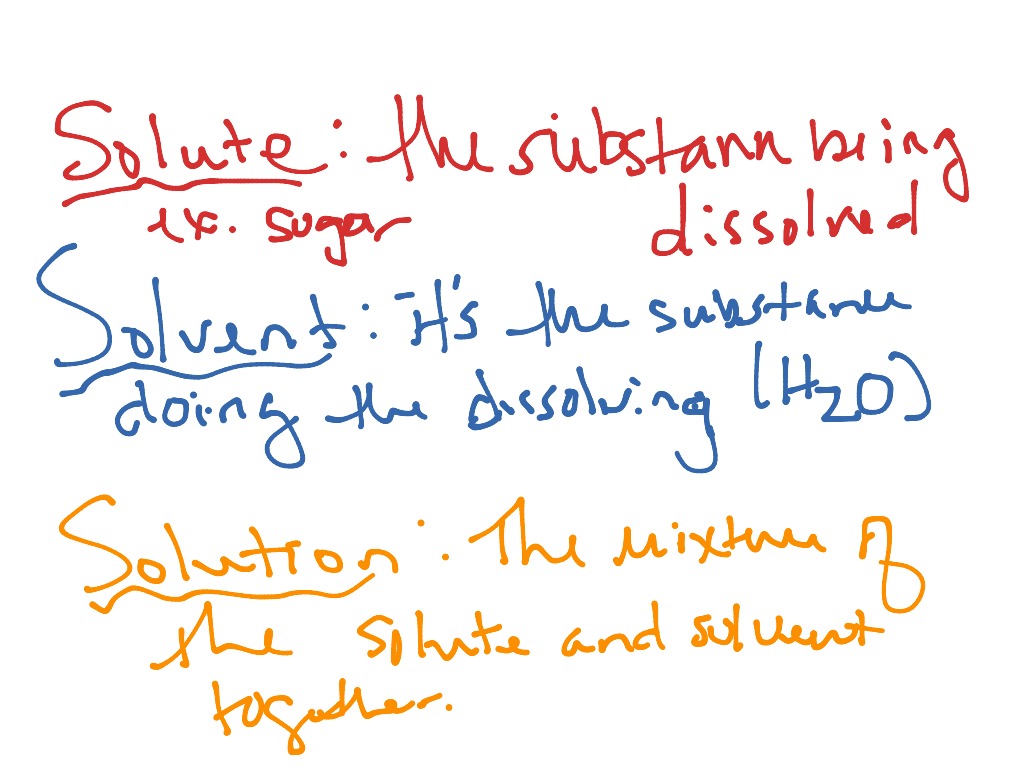 Solute: the substance being
dissolved
ex. sugar
Solvent: it's the substance
doing the dissolving (H2O)
Solution: The mixture of
the solute and solvent
together.